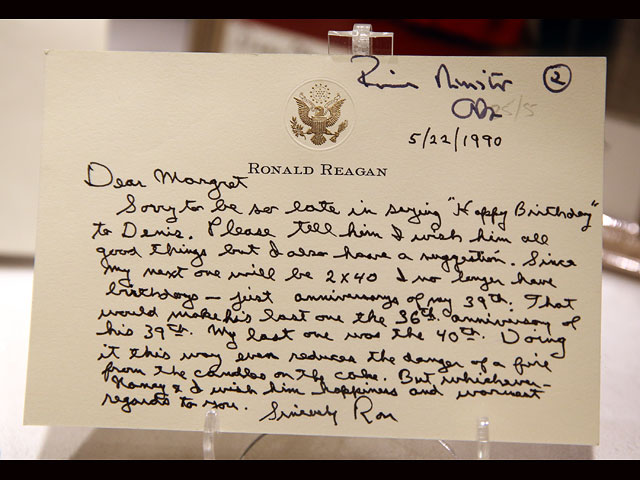 Prime Minister ②
5/22/1990
RONALD REAGAN
Dear Margret
Sorry to be so late in saying "Happy Birthday"
to Denis. Please tell him I wish him all
good things but I also have a suggestion. Since
my next one will be 2x40 I no longer have
birthdays – just anniversarys of my 39th. That
would make his last one the 36th anniversary of
his 39th. My last one was the 40th. Doing
it this way even reduces the danger of a fire
from the candles on the cake. But whichever –
Nancy & I wish him happiness and warmest
regards to you. Sincerely Ron